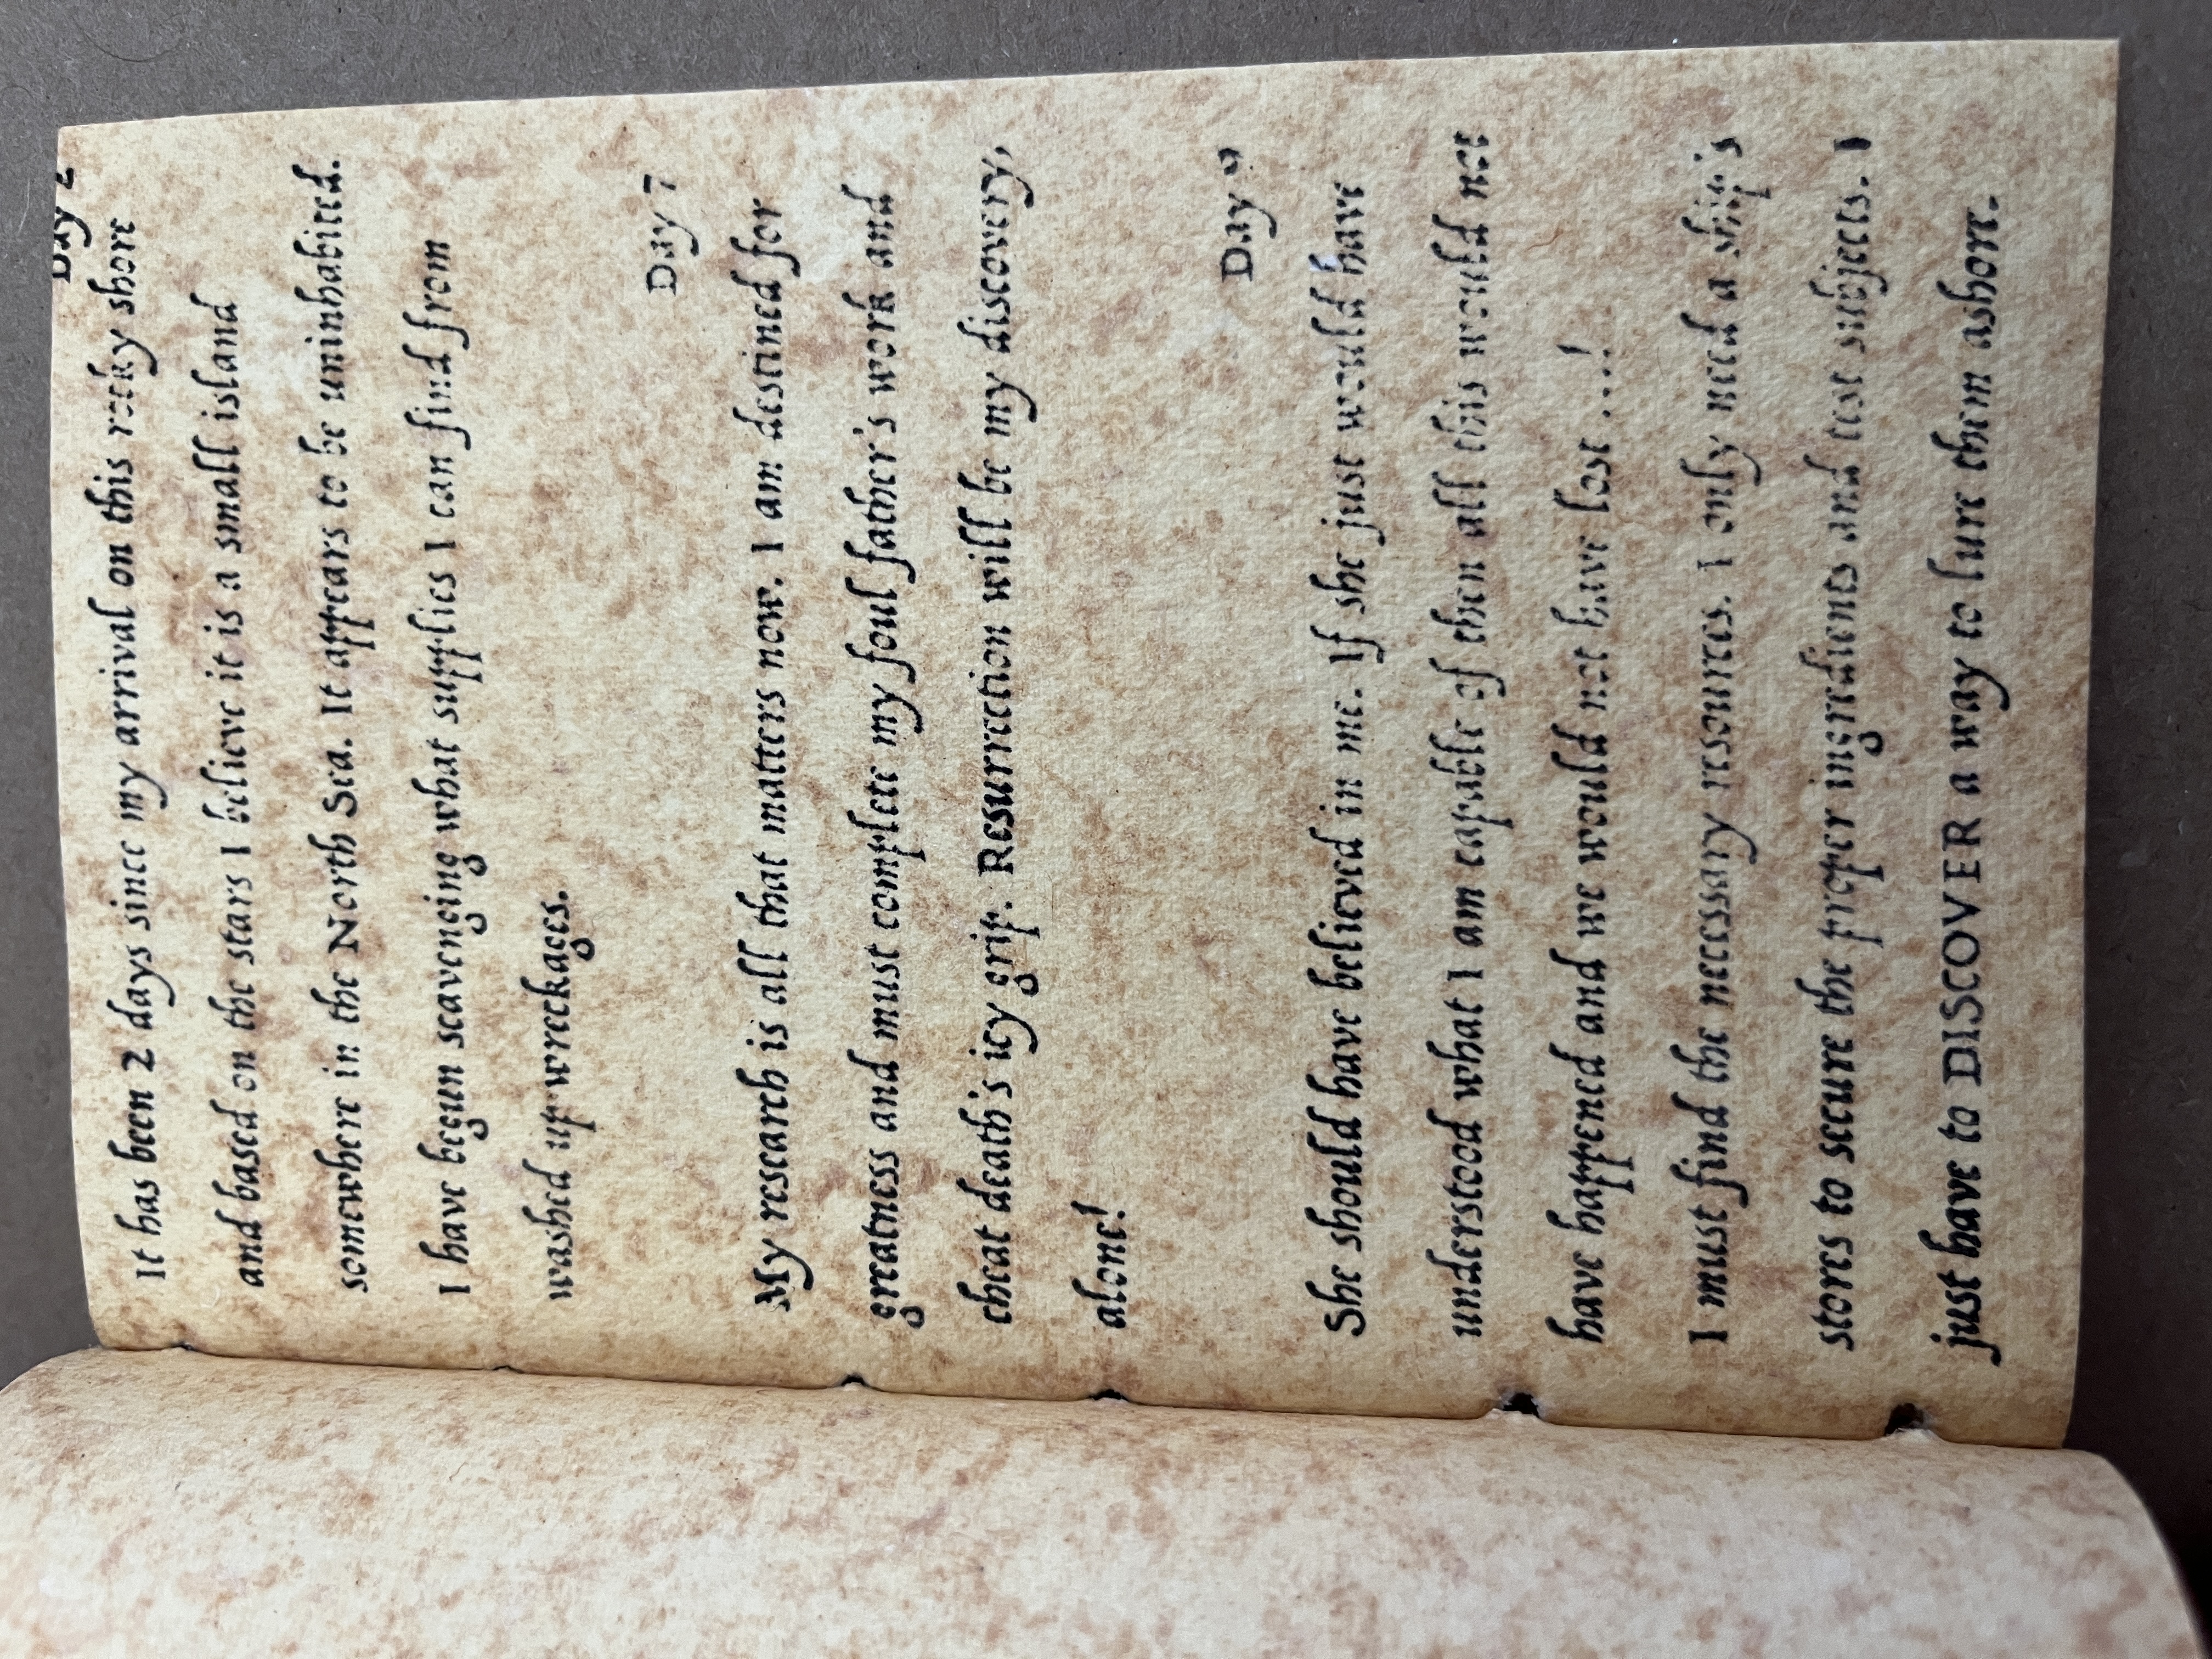 Day 2
It has been 2 days since my arrival on this rocky shore
and based on the stars I believe it is a small island
somewhere in the North Sea. It appears to be uninhabited.
I have begun scavenging what supplies I can find from
washed up wreckages.
Day 7
My research is all that matters now. I am destined for
greatness and must complete my foul father's work and
cheat death's icy grip. Resurrection will be my discovery,
alone!
Day 9
She should have believed in me. If she just would have
understood what I am capable of then all this would not
have happened and we would not have lost ....!
I must find the necessary resources. I only need a ship's
stores to secure the proper ingredients and test subjects. I
just have to DISCOVER a way to lure them ashore.